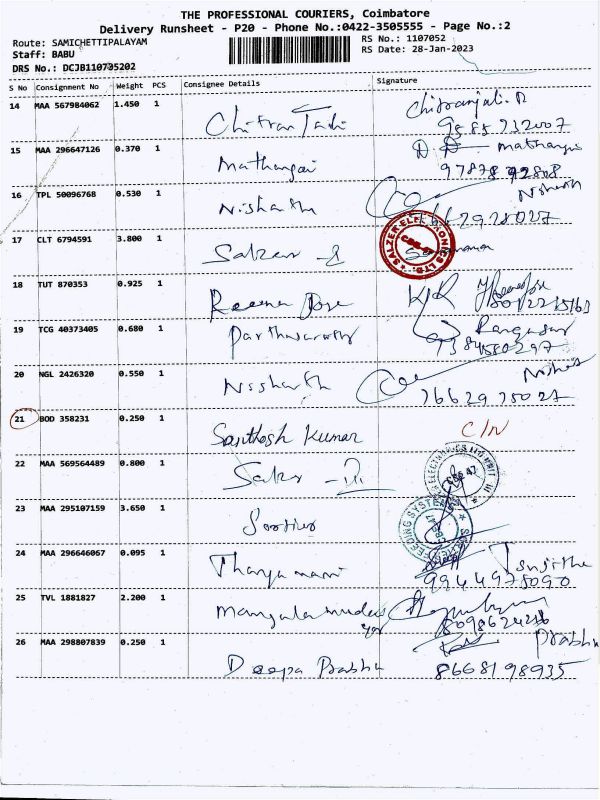 THE PROFESSIONAL COURIERS, Coimbatore
Delivery Runsheet - P20 - Phone No.:0422-3505555 - Page No.:2
Route: SAMICHETTIPALAYAM
RS No.: 1107052
Staff: BABU
RS Date: 28-Jan-2023
DRS No.: DCJB110705202
S No Consignment No Weight PCS Consignee Details Signature
14 MAA 567984062 1.450 1 Chitranjali.R
15 MAA 296647126 0.370 1 Mathangi Mathangi
16 TPL 50096768 0.530 1 Nishanth Nishanth
17 CLT 6794591 3.800 1 Salzer - II
SALZER ELECTRONICS LTD
18 TUT 870353 0.925 1 Reena Jose
19 TCG 40373405 0.680 1 Parthasarathy
20 NGL 2426320 0.550 1 Nishanth
7662975027
21 BOD 358231 0.250 1 Santhosh Kumar C/N
22 MAA 569564489 0.800 1 - III
ELECTRONICS LTD UNIT III
23 MAA 295107159 3.650 1
24 MAA 296646067 0.095 1
9944975090
25 TVL 1881827 2.200 1
26 MAA 298807839 0.250 1 Deepa Prabhu Prabhu
8668198935